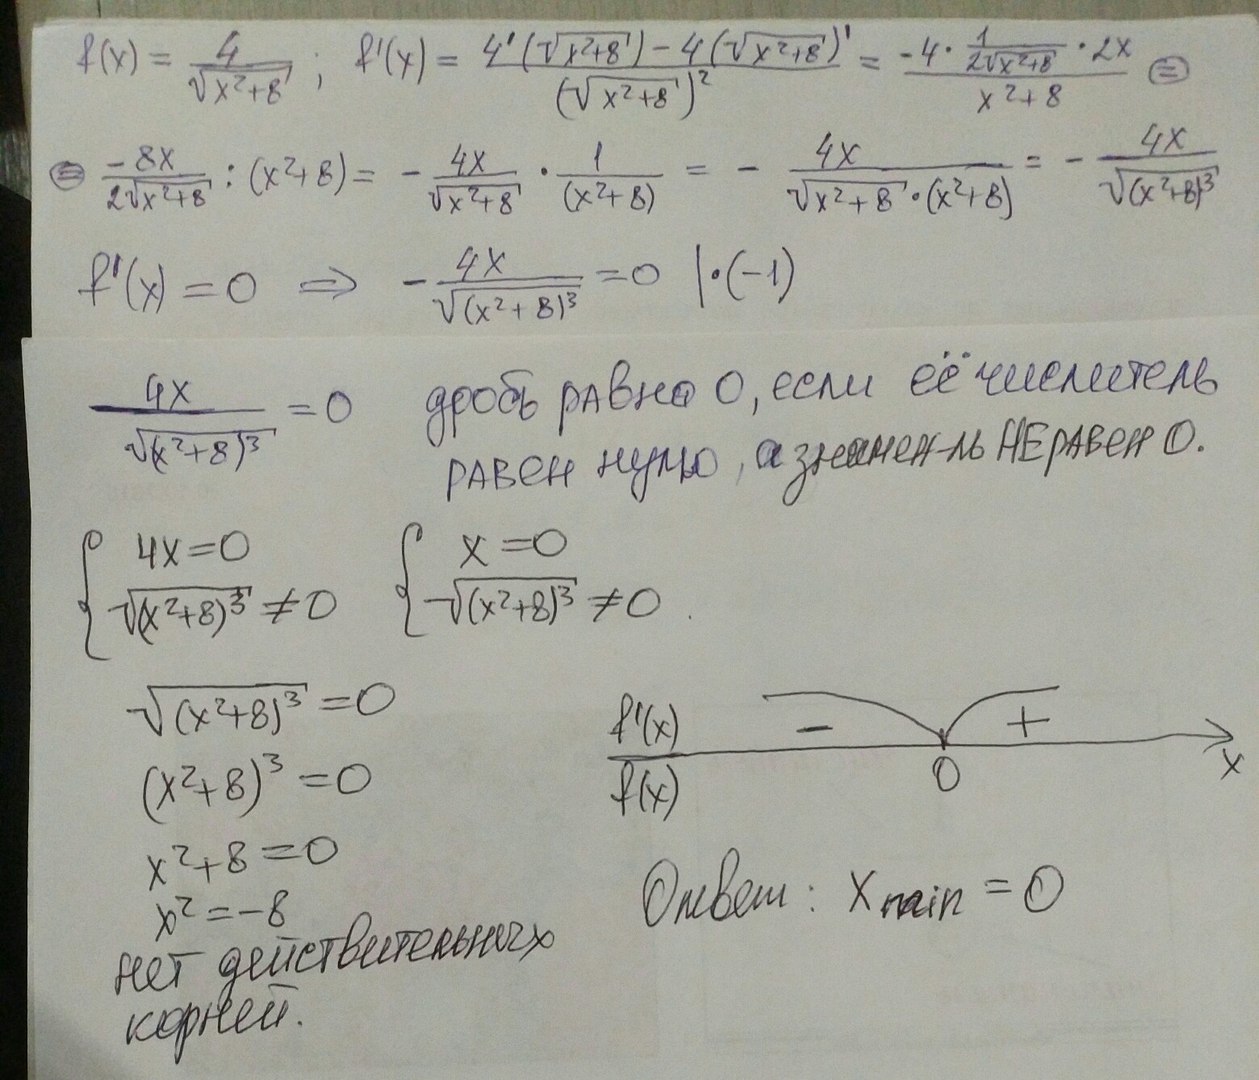 f(x) = 4/√(x²+8) ; f'(x) = (4'(√(x²+8)) − 4(√(x²+8))')/(√(x²+8))² = (−4 · 1/(2√(x²+8)) · 2x)/(x²+8) ⊜
⊜ −8x/(2√(x²+8)) : (x²+8) = − 4x/√(x²+8) · 1/(x²+8) = − 4x/(√(x²+8) · (x²+8)) = − 4x/√((x²+8)³)
f'(x) = 0 ⇒ − 4x/√((x²+8)³) = 0 |·(−1)
4x/√((x²+8)³) = 0 дробь равна 0, если её числитель
равен нулю, а знамен-ль НЕ равен 0.
{ 4x = 0 { x = 0
√((x²+8)³) ≠ 0 √((x²+8)³) ≠ 0.
√((x²+8)³) = 0
(x²+8)³ = 0
x²+8 = 0
x² = −8
нет действительных
корней.
f'(x) − +
f(x) 0 x
Ответ: x min = 0